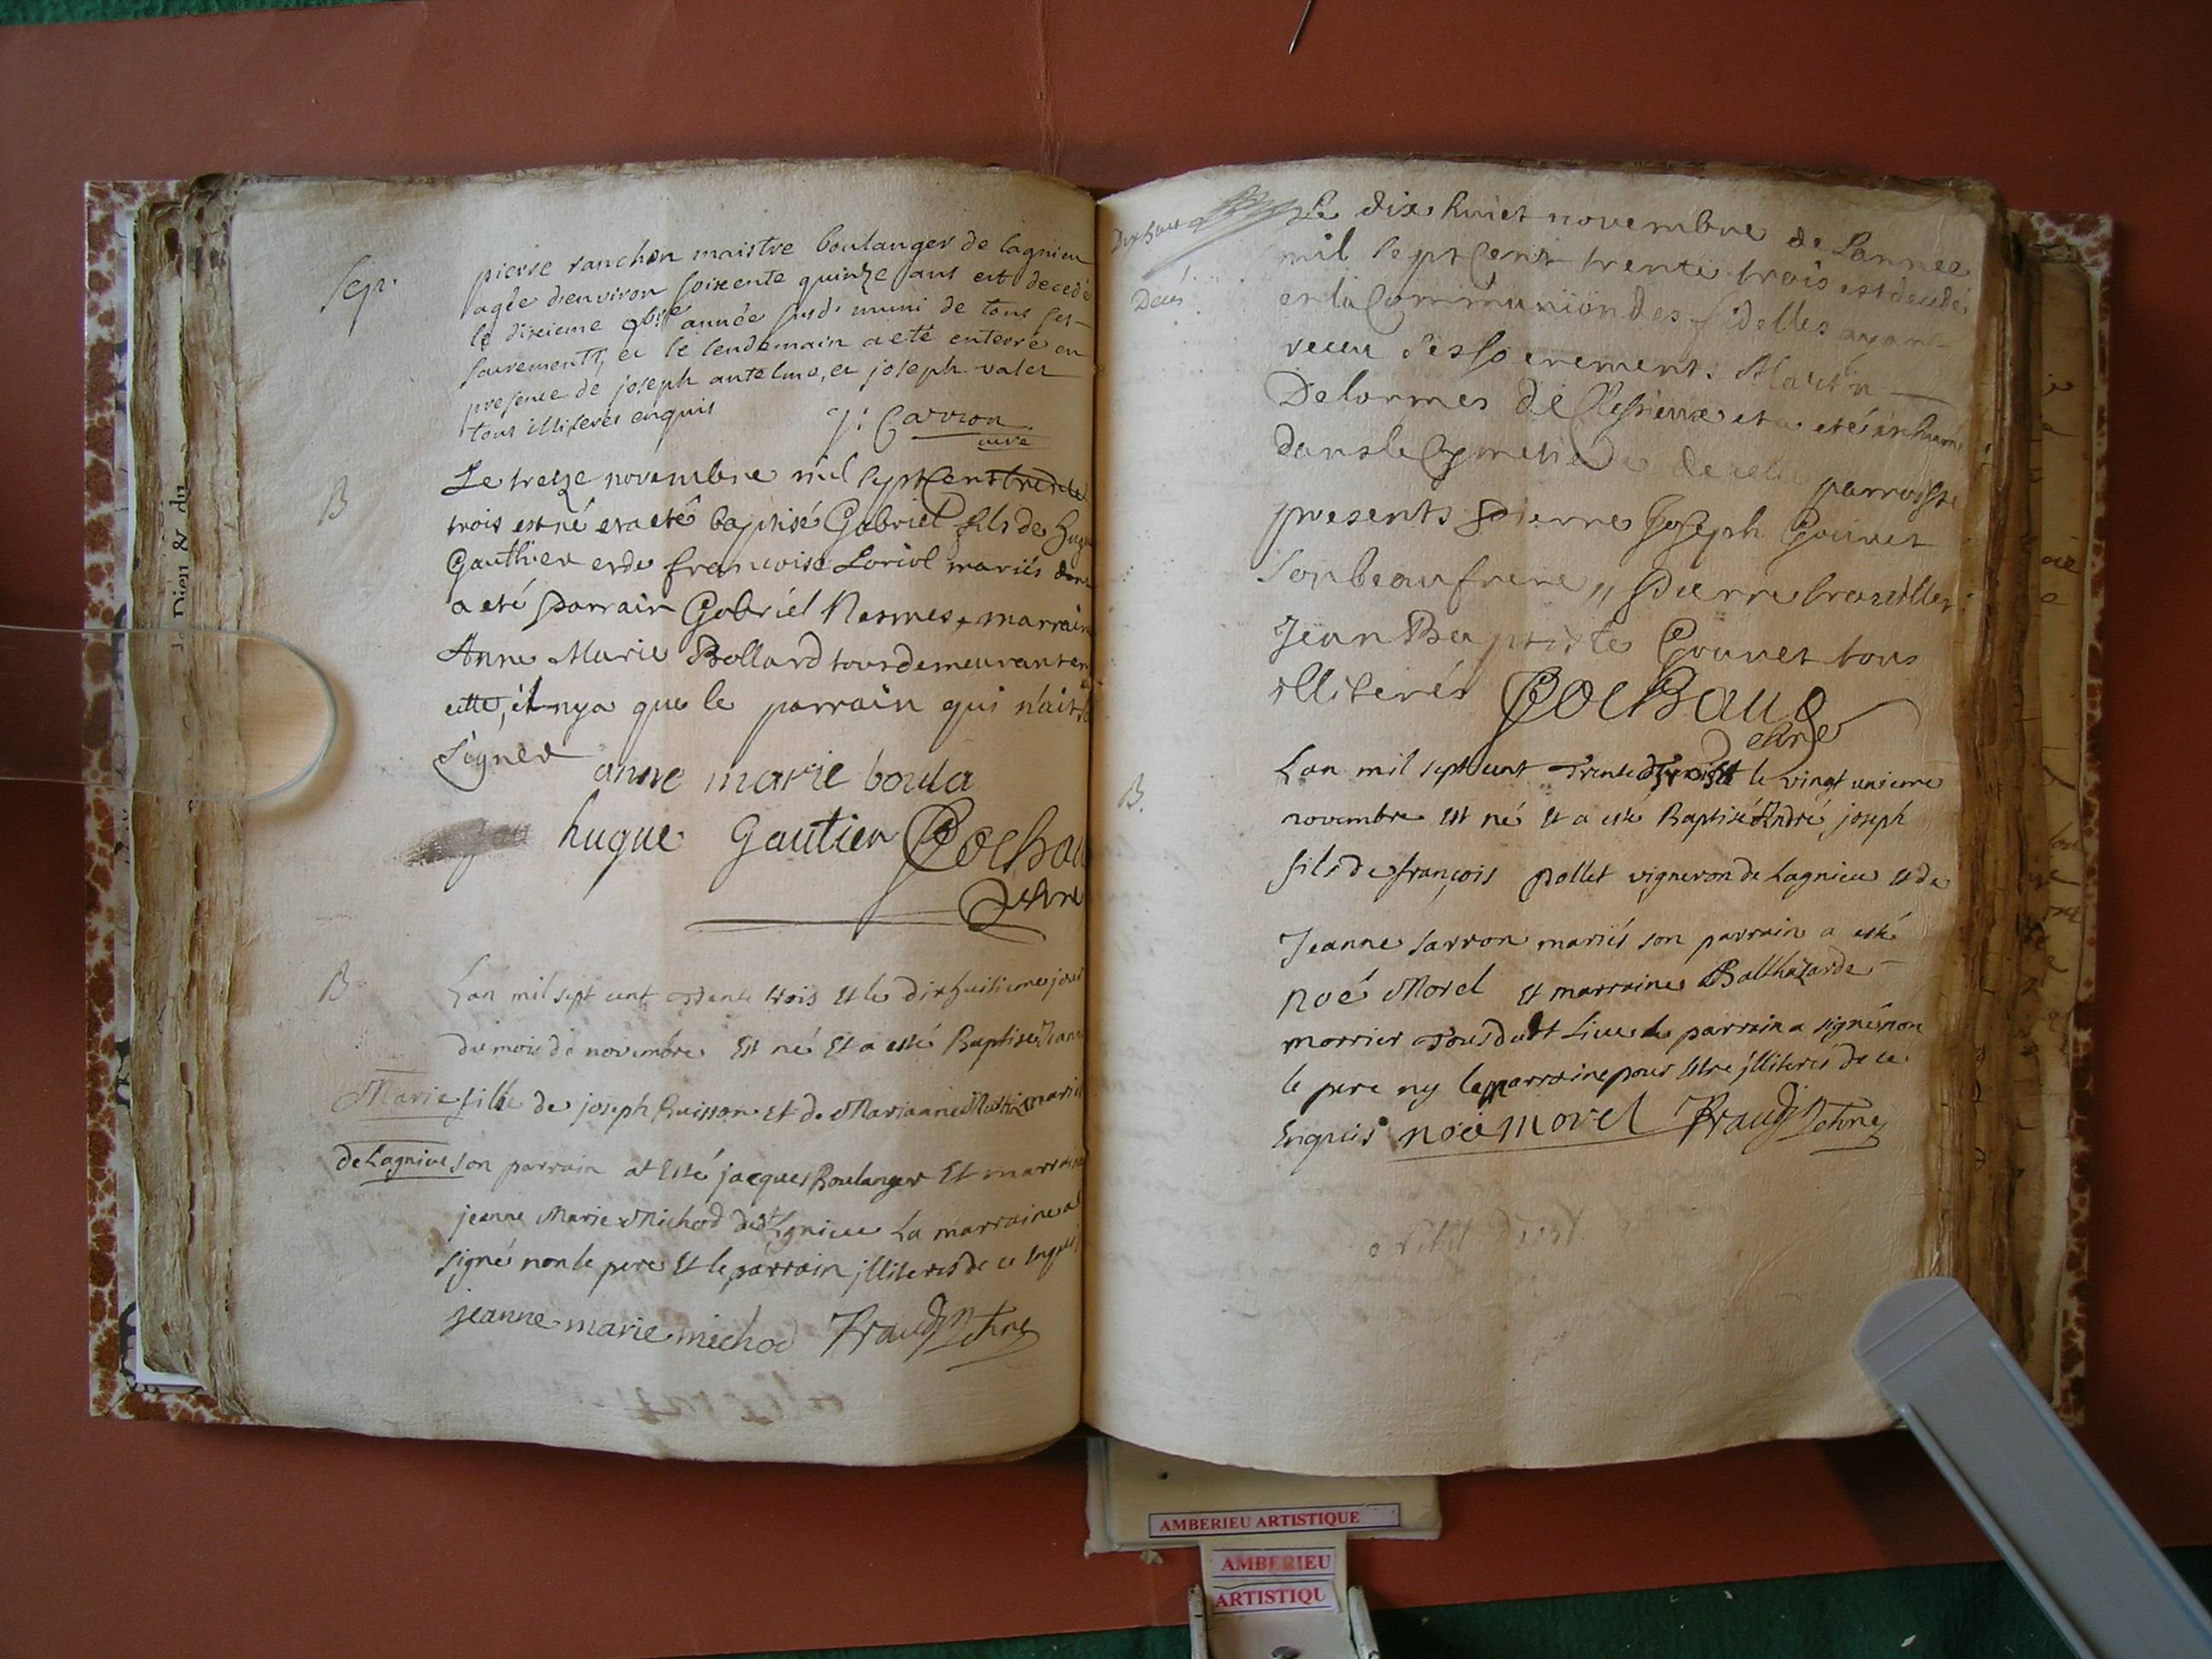 Sep.
pierre ranchon maistre boulanger de lagnieu
agée d'environ soixente quinze ans est decedé
le dixieme 9bre année susd. muni de tous ses
sacrements, et le lendemain a eté enterré en
presence de joseph antelme, et joseph valet
tous illiterés enquis
J. Carron
curé
B
Le treze novembre mil sept cent trente
trois est né et a eté baptisé Gabriel fils de hugue
Gauthier et de francoise Loriol mariés dont
a eté parrain Gabriel Nesmes, marraine
Anne Marie Bollard tous demeurant en
cette, il n'y a que le parrain qui n'ait
signer
anne marie boula
hugue Gautier Cochau
B
L'an mil sept cent trente trois et le dixhuitieme jour
du mois de novembre est né et a esté Baptisé
Marie fille de joseph Buisson et de Marianne mariés
de Lagnieu son parrain at esté jacques Boulanger et marraine
jeanne Marie Michod dudt Lgnieu La marraine a
signé non le pere et le parrain jlliterés de ce enquis
jeanne marie michod
Decés
Le dix huict novembre de Lannee
mil sept cent trente trois est decedé
en la communion des fidelles ayant
receu ses sacrement. Martin
Delormes de et a eté inhumé
dans le parroisse
presents Pierre Joseph Gounet
son beaufrere, Pierre
Jean Baptiste Gounet tous
illiterés Cochau
B.
L'an mil sept cent trente trois le vingt unieme
novembre est né et a esté Baptisé André joseph
fils de françois Pollet vigneron de Lagnieu et de
Jeanne Sarron mariés son parrain a esté
Noé Morel et marraine Balthazarde
morrier tous dudt Lieu le parrain a signé non
le pere ny la marraine pour estre jlliterés de ce
Enquis noé morel
Dieu & du
AMBERIEU ARTISTIQUE
AMBERIEU
ARTISTIQU